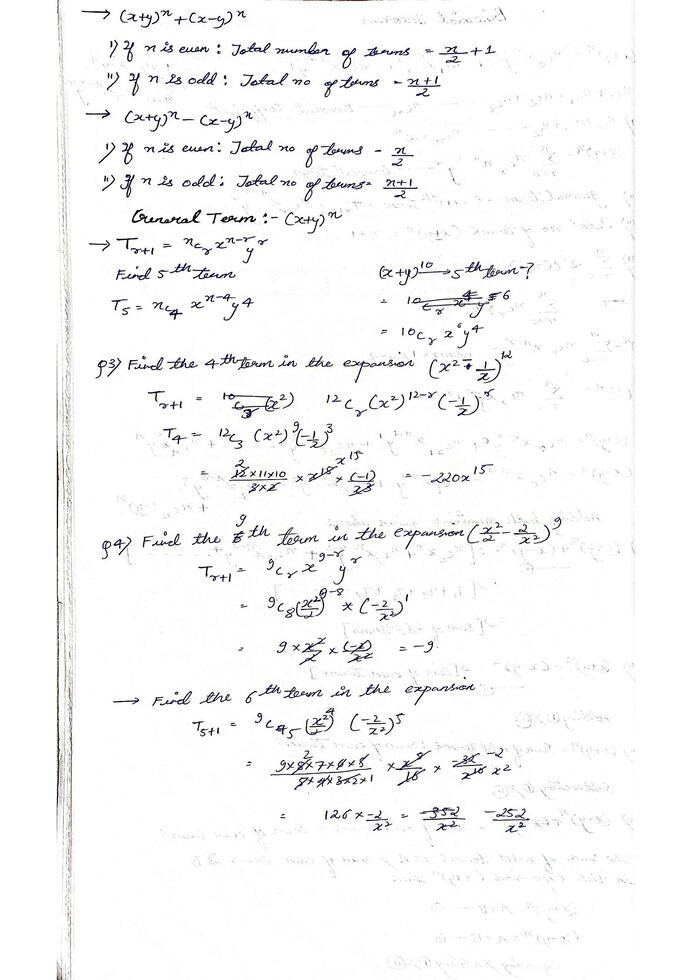 → (x+y)ⁿ + (x-y)ⁿ
i) If n is even : Total number of terms = n/2 + 1
ii) If n is odd : Total no of terms = n+1/2
→ (x+y)ⁿ - (x-y)ⁿ
i) If n is even : Total no of terms - n/2
ii) If n is odd : Total no of terms = n+1/2
General Term :- (x+y)ⁿ
→ Tr+1 = nCr xⁿ⁻ʳ yʳ
Find 5th term
T5 = nC4 xⁿ⁻⁴ y⁴
(x+y)¹⁰ → 5th term ?
= 10Cr x⁶ y⁴
Q3) Find the 4th term in the expansion (x² - 1/x)¹²
Tr+1 = 12Cr (x²)¹²⁻ʳ (-1/x)ʳ
T4 = 12C3 (x²)⁹ (-1/x)³
= 12×11×10/3×2 × x¹⁸ x¹⁵ × (-1)/x³ = -220x¹⁵
Q4) Find the 9th term in the expansion (x²/2 - 2/x²)⁹
Tr+1 = 9Cr x⁹⁻ʳ yʳ
= 9C8 (x²/2)⁹⁻⁸ × (-2/x²)¹
= 9 × x²/2 × (-2)/x² = -9
→ Find the 6th term in the expansion
T5+1 = 9C5 (x²/2)⁴ (-2/x²)⁵
= 126 × -2/x² = -252/x²